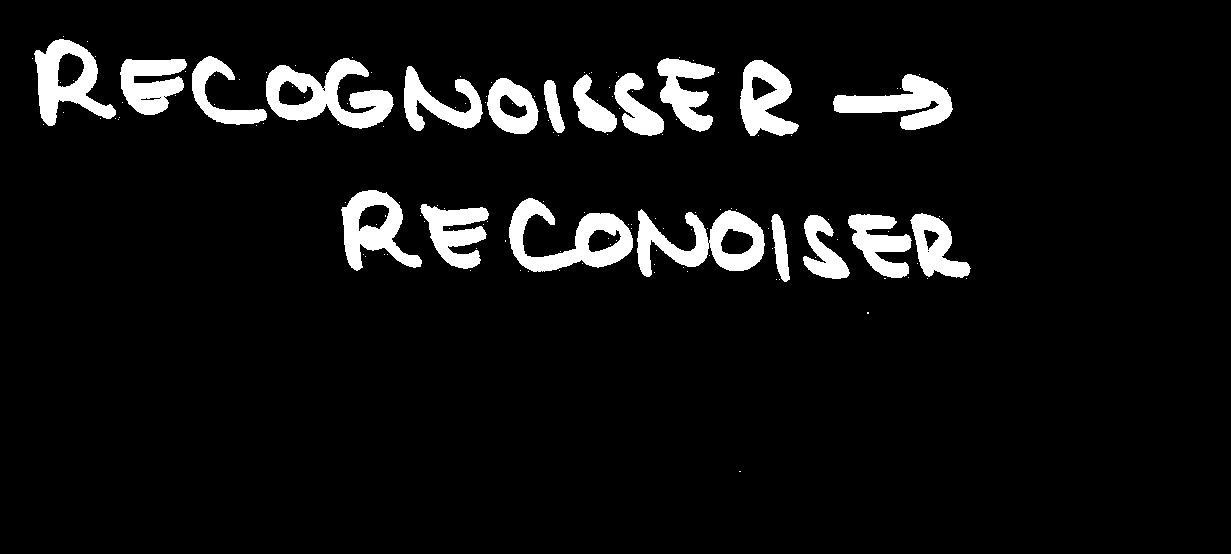 RECOGNOISSER →
RECONOISER